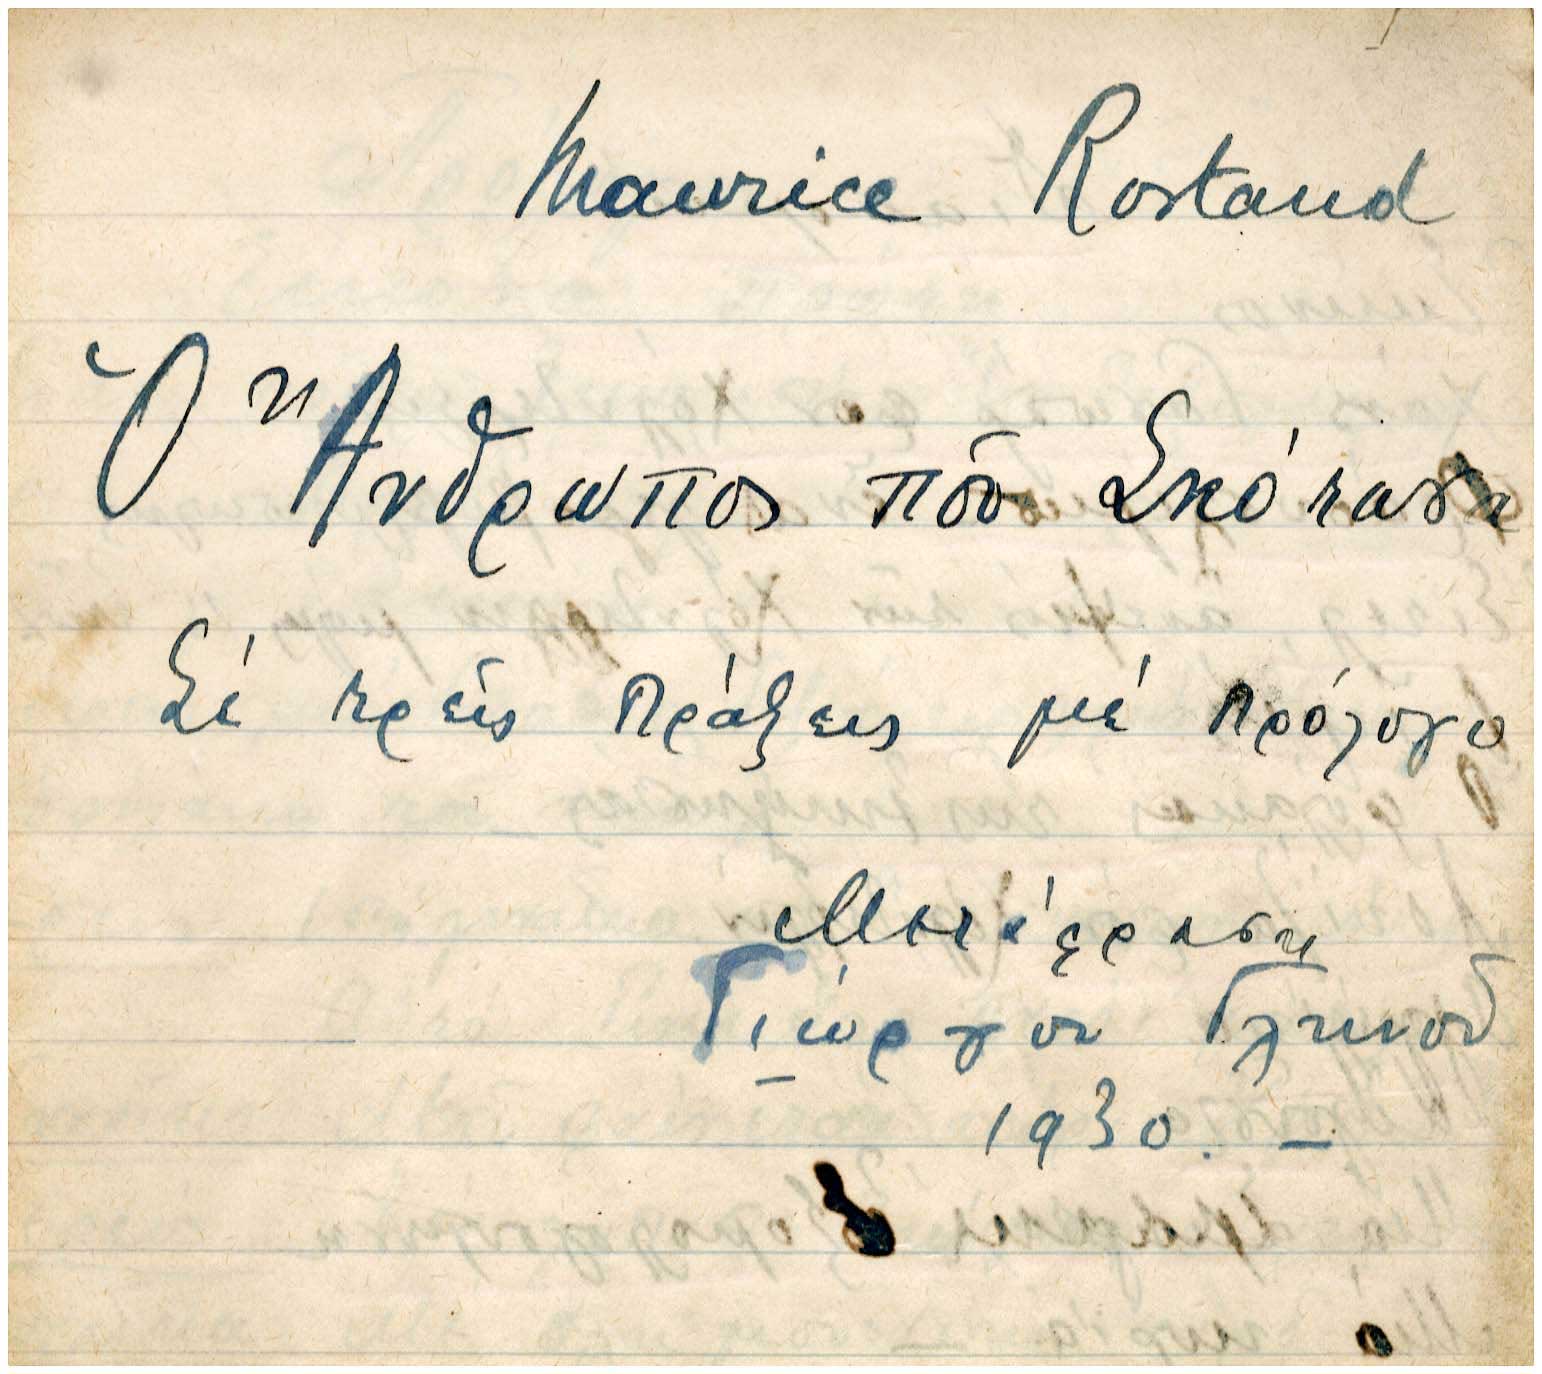 Maurice Rostand
Ὁ Ἄνθρωπος ποὺ Σκότωσα
Σὲ τρεῖς Πράξεις μὲ πρόλογο
Μετάφραση
Γιώργου Γληνοῦ
1930. –